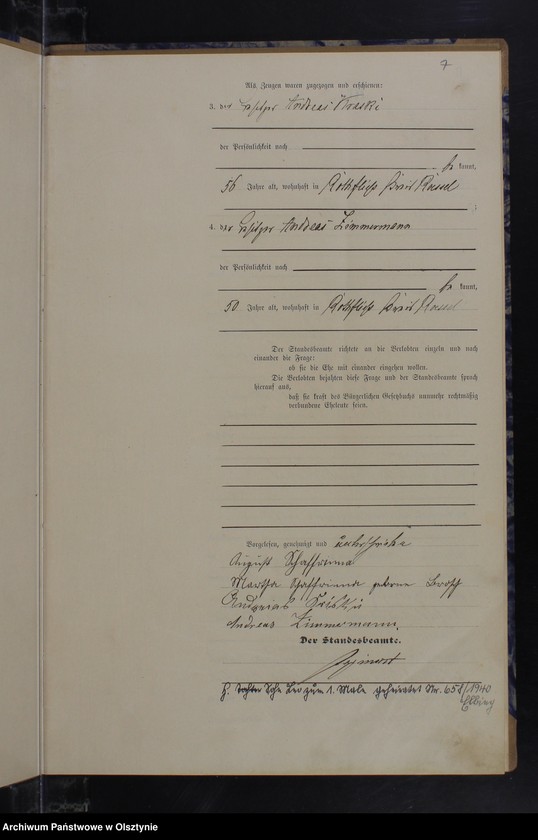 7
Als Zeugen waren zugezogen und erschienen:
3. der Besitzer Andreas
der Persönlichkeit nach
be kannt,
56 Jahre alt, wohnhaft in Rothfließ Kreis Rössel
;
4. der Besitzer Andreas Zimmermann
der Persönlichkeit nach
be kannt,
50 Jahre alt, wohnhaft in Rothfließ Kreis Rössel
Der Standesbeamte richtete an die Verlobten einzeln und nach
einander die Frage:
ob sie die Ehe mit einander eingehen wollen.
Die Verlobten bejahten diese Frage und der Standesbeamte sprach
hierauf aus,
daß sie kraft des Bürgerlichen Gesetzbuchs nunmehr rechtmäßig
verbundene Eheleute seien.
Vorgelesen, genehmigt und unterschrieben
August Schaffrinna
Martha Schaffrinna geborne
Andreas
Andreas Zimmermann.
Der Standesbeamte.
H. Tochter Sohn Leo zum 1. Male geheiratet Nr. 651/1940
Elbing
Archiwum Państwowe w Olsztynie